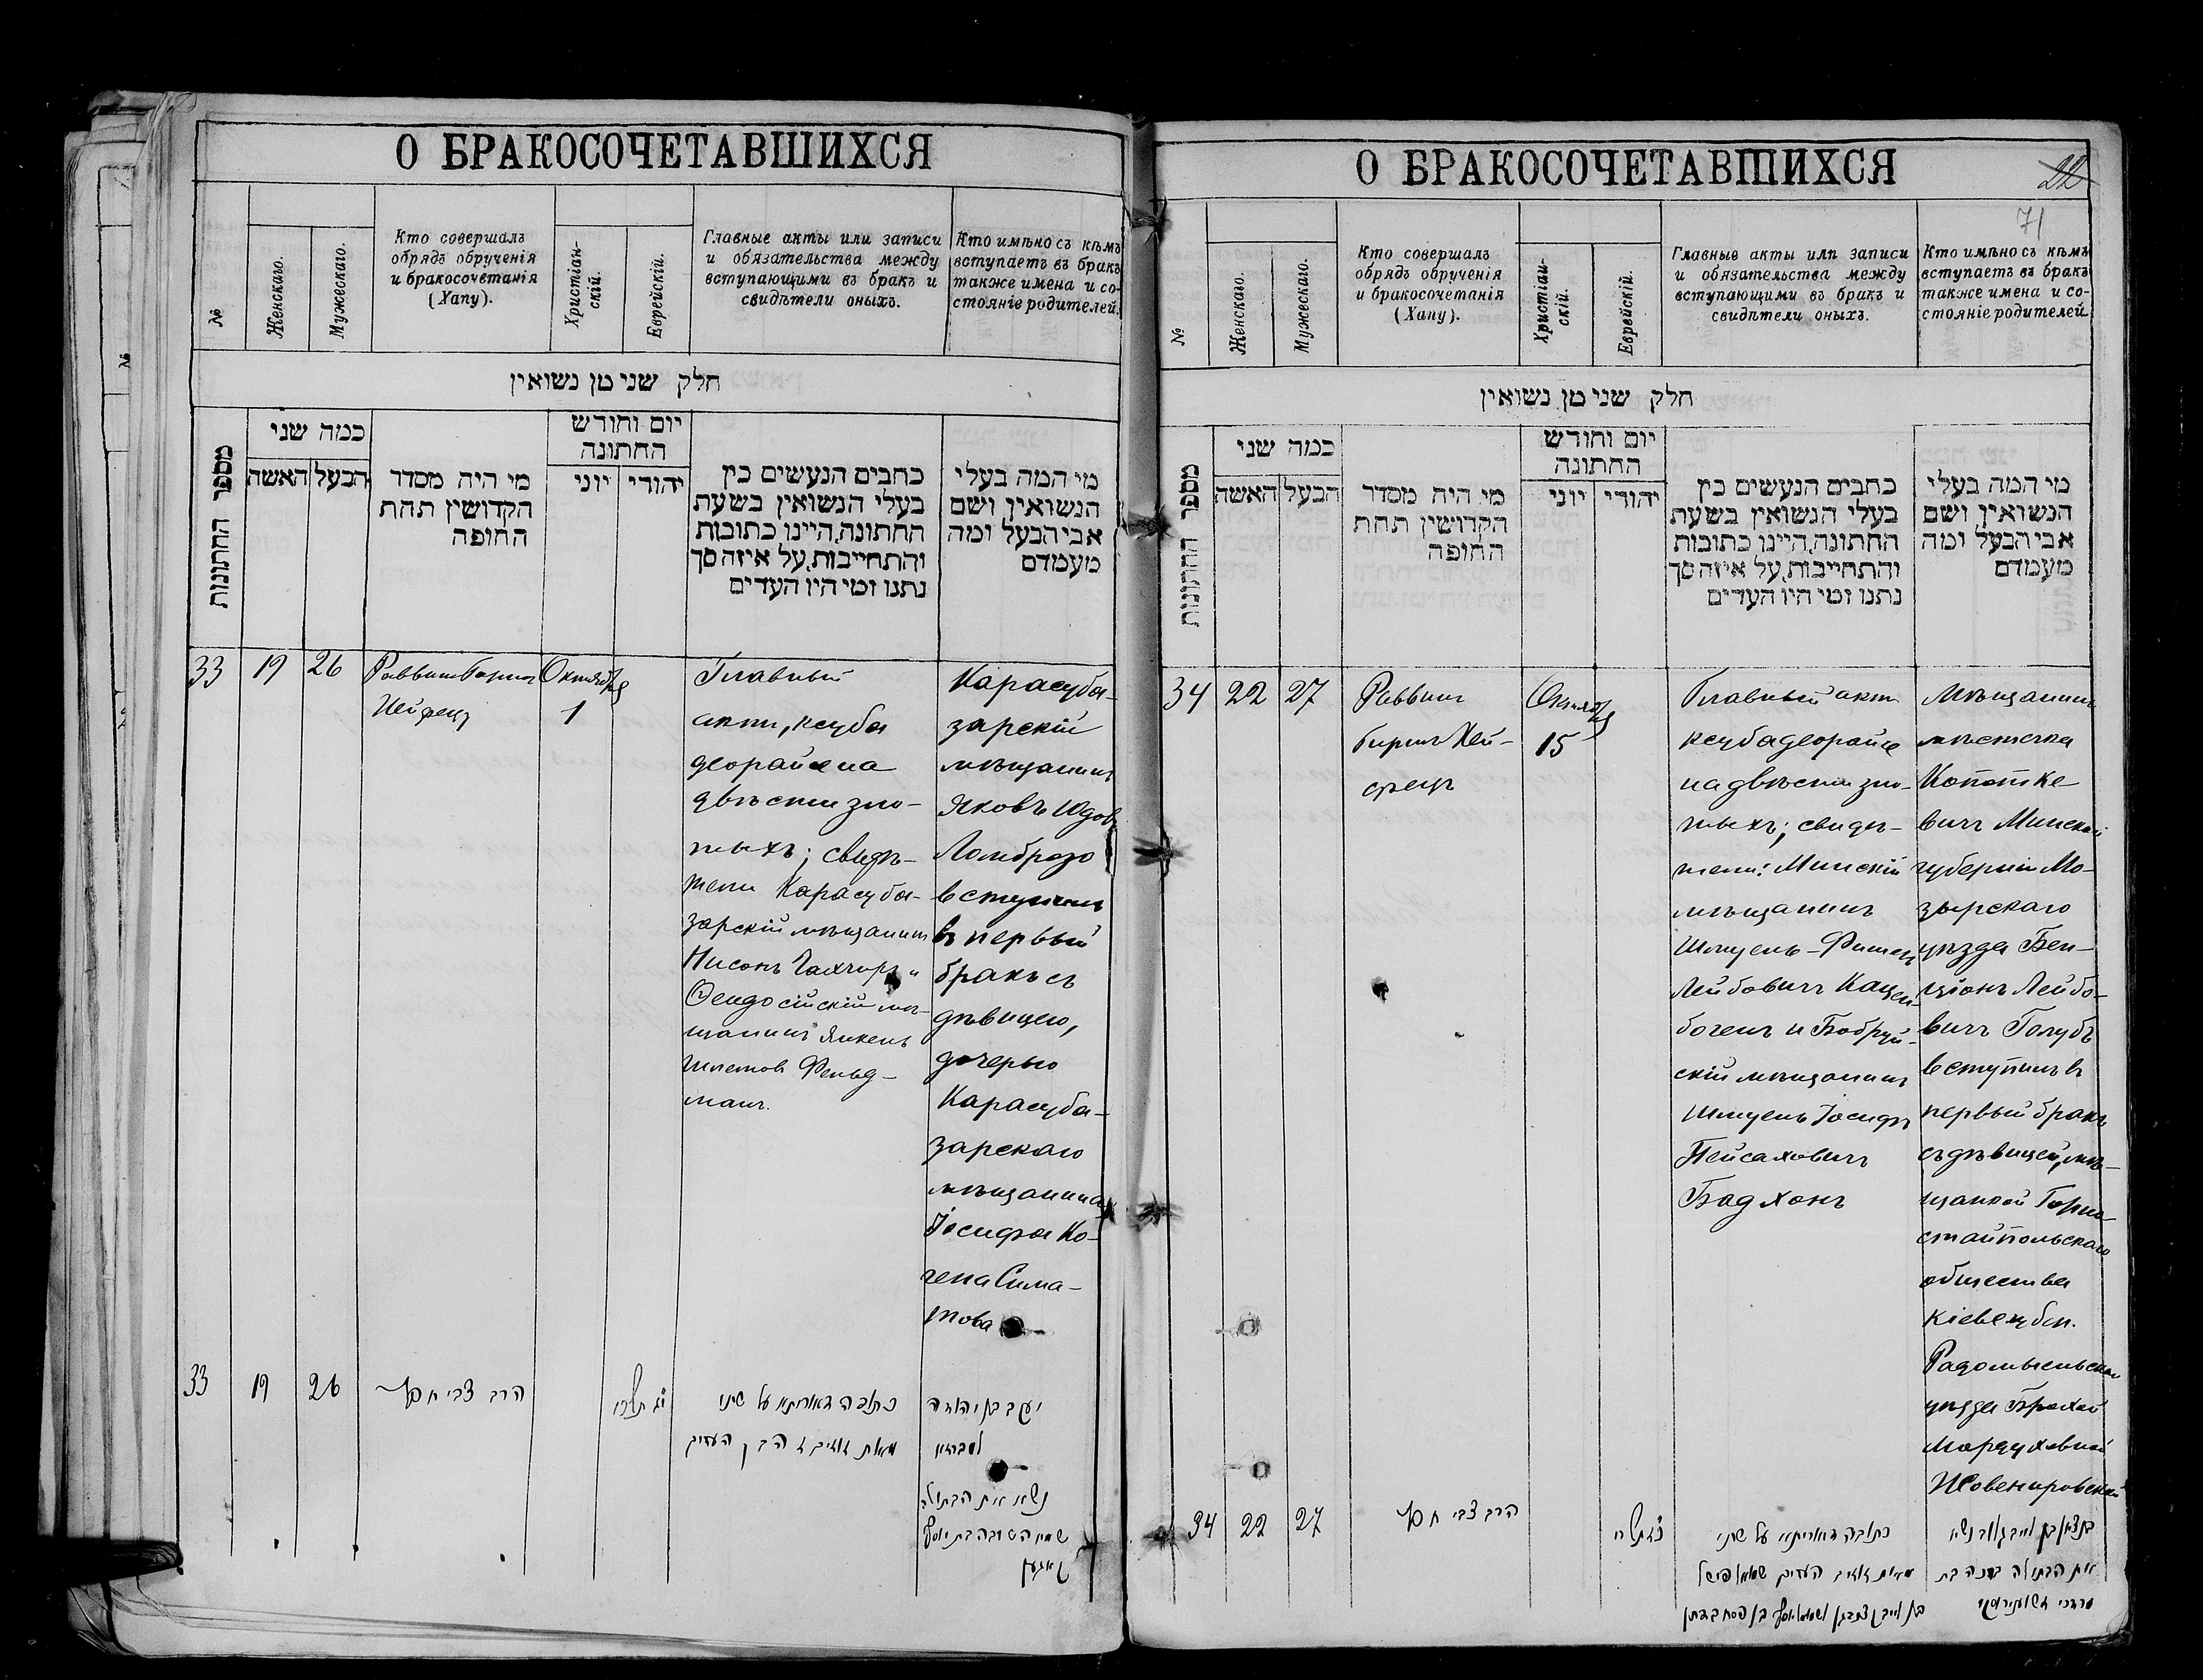 О БРАКОСОЧЕТАВШИХСЯ
№
Женскаго.
Мужескаго.
Кто совершалъ
обрядъ обрученія
и бракосочетанія
(Хапу).
Христіан-
скій.
Еврейскій.
Главные акты или записи
и обязательства между
вступающими въ бракъ и
свидѣтели оныхъ.
Кто имѣно съ кѣмъ
вступаетъ въ бракъ
также имена и со-
стояніе родителей.
חלק שני מן נשואין
מספר החתונות
כמה שני
האשה
הבעל
מי היה מסדר
הקדושין תחת
החופה
יום וחודש
החתונה
יוני
יהודי
כתבים הנעשים בין
בעלי הנשואין בשעת
החתונה, היינו כתובות
והתחייבות, על איזה סך
נתנו ומי היו העדים
מי המה בעלי
הנשואין ושם
אבי הבעל ומה
מעמדם
33
19
26
Раввинъ
Хейфецъ
Октября
1
Главный
актъ, ксуба
деорайса на
двѣсти зло-
тыхъ; свидѣ-
тели Карасуба-
зарскій мѣщанинъ
Нисонъ и
Ѳеодосійскій мѣ-
щанинъ Янкель
Шлемов Фельд-
манъ.
Карасуба-
зарскій
мѣщанинъ
Яковъ Юдов
Ломброзо
вступилъ
въ первый
бракъ съ
дѣвицею,
дочерью
Карасуба-
зарскаго
мѣщанина
Іосифа Ко-
гена
33
19
26
הרב צבי חפץ
תשרי
כתובה דאורייתא על שתי
מאות זהובים העדים
יעקב בן יהודה
לומברוזו
נשא את הבתולה
בת יוסף
О БРАКОСОЧЕТАВШИХСЯ
22
71
№
Женскаго.
Мужескаго.
Кто совершалъ
обрядъ обрученія
и бракосочетанія
(Хапу).
Христіан-
скій.
Еврейскій.
Главные акты илп записи
и обязательства между
вступающими въ бракъ и
свидѣтели оныхъ.
Кто имѣно съ кѣмъ
вступаетъ въ бракъ
также имена и со-
стояніе родителей.
חלק שני מן נשואין
מספר החתונות
כמה שני
האשה
הבעל
מי היה מסדר
הקדושין תחת
החופה
יום וחודש
החתונה
יוני
יהודי
כתבים הנעשים בין
בעלי הנשואין בשעת
החתונה, היינו כתובות
והתחייבות, על איזה סך
נתנו ומי היו העדים
מי המה בעלי
הנשואין ושם
אבי הבעל ומה
מעמדם
34
22
27
Раввинъ
Хей-
фецъ
Октября
15
Главный актъ
ксуба деорайсе
на двѣсти зло-
тыхъ; свидѣ-
тели: Минскій
мѣщанинъ
Шмуель-Фишель
Лейбовичъ Кацен-
богенъ и Бобруй-
скій мѣщанинъ
Шмуель Іосифъ
Пейсаховичъ
Бадханъ
Мѣщанинъ
мѣстечка
Копатке-
вичъ Минской
губерніи Мо-
зырскаго
уѣзда Бен-
ціонъ Лейбо-
вичъ Голубъ
вступилъ въ
первый бракъ
съ дѣвицей, мѣ-
щанкой Горно-
стайпольскаго
общества
Кіевс. губ.
Радомысльскаго
уѣзда Брахой
Мордуховной
34
22
27
הרב צבי חפץ
תשרי
כתובה דאורייתא על שתי
מאות זהובים העדים שמואל פישל
בן לייב קצנבוגן ושמואל יוסף בן פסח בדחן
בן ציון בן לייב גולוב נשא
את הבתולה ברכה בת
מרדכי